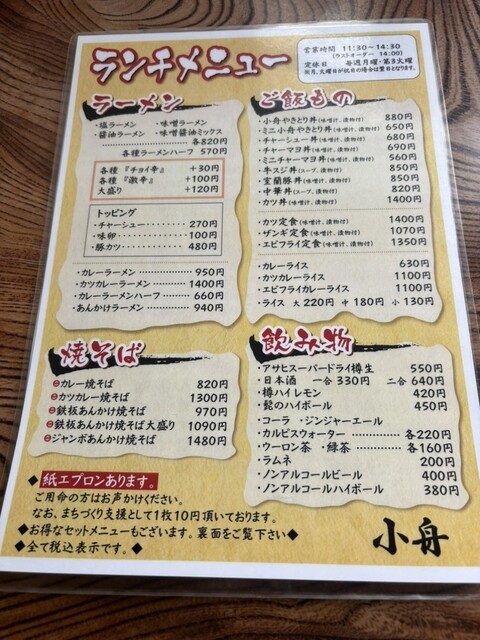 ランチメニュー
営業時間 11:30～14:30
(ラストオーダー 14:00)
定休日 毎週月曜・第3火曜
※月、火曜日が祝日の場合は翌日となります。
ラーメン
・塩ラーメン ・味噌ラーメン
・醤油ラーメン ・味噌醤油ミックス
各820円
各種ラーメンハーフ 570円
各種『チョイ辛』 +30円
各種『激辛』 +100円
大盛り +120円
トッピング
・チャーシュー 270円
・味卵 100円
・豚カツ 480円
・カレーラーメン 950円
・カツカレーラーメン 1400円
・カレーラーメンハーフ 660円
・あんかけラーメン 940円
ご飯もの
・小舟やきとり丼(味噌汁、漬物付) 880円
・ミニ小舟やきとり丼(味噌汁、漬物付) 650円
・チャーシュー丼(味噌汁、漬物付) 680円
・チャーマヨ丼(味噌汁、漬物付) 690円
・ミニチャーマヨ丼(味噌汁、漬物付) 560円
・牛スジ丼(スープ、漬物付) 850円
・室蘭豚丼(スープ、漬物付) 850円
・中華丼(スープ、漬物付) 820円
・カツ丼(味噌汁、漬物付) 1400円
・カツ定食(味噌汁、漬物付) 1400円
・ザンギ定食(味噌汁、漬物付) 1070円
・エビフライ定食(味噌汁、漬物付) 1350円
・カレーライス 630円
・カツカレーライス 1100円
・エビフライカレーライス 1100円
・ライス 大220円 中180円 小130円
焼そば
カレー焼そば 820円
カツカレー焼そば 1300円
鉄板あんかけ焼そば 970円
鉄板あんかけ焼そば大盛り 1090円
ジャンボあんかけ焼そば 1480円
飲み物
・アサヒスーパードライ樽生 550円
・日本酒 一合330円 二合640円
・樽ハイレモン 420円
・髭のハイボール 450円
・コーラ ・ジンジャーエール
・カルピスウォーター 各220円
・ウーロン茶 ・緑茶 各160円
・ラムネ 200円
・ノンアルコールビール 400円
・ノンアルコールハイボール 380円
◆紙エプロンあります。
ご用命の方はお声かけください。
なお、まちづくり支援として1枚10円頂いております。
◆お得なセットメニューもございます。裏面をご覧下さい◆
◆全て税込表示です。◆
小舟